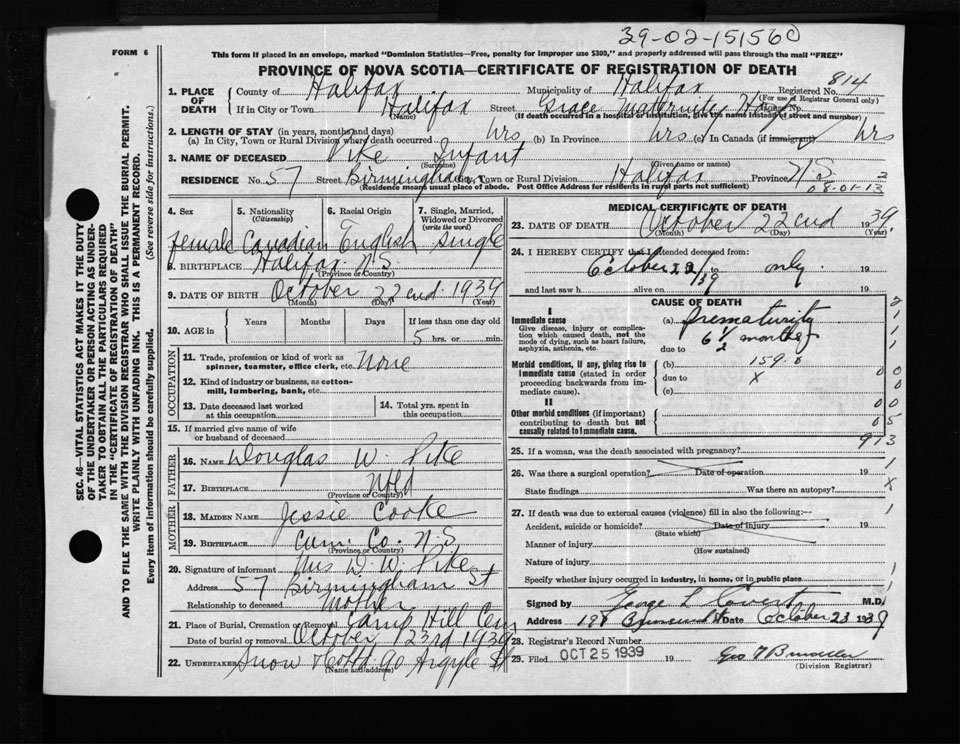 39-02-151560
FORM 6
This form if placed in an envelope, marked "Dominion Statistics—Free, penalty for improper use $300," and properly addressed will pass through the mail "FREE"
PROVINCE OF NOVA SCOTIA—CERTIFICATE OF REGISTRATION OF DEATH
SEC. 46—VITAL STATISTICS ACT MAKES IT THE DUTY
OF THE UNDERTAKER OR PERSON ACTING AS UNDER-
TAKER TO OBTAIN ALL THE PARTICULARS REQUIRED
IN THE "CERTIFICATE OF REGISTRATION OF DEATH"
AND TO FILE THE SAME WITH THE DIVISION REGISTRAR WHO SHALL ISSUE THE BURIAL PERMIT.
WRITE PLAINLY WITH UNFADING INK. THIS IS A PERMANENT RECORD.
Every item of information should be carefully supplied. (See reverse side for instructions.)
1. PLACE OF DEATH County of Halifax Municipality of Halifax Registered No. 814
(For use of Registrar General only)
If in City or Town Halifax Street Grace Maternity Hosp House No.
(Name) (If death occurred in a hospital or institution, give the name instead of street and number)
2. LENGTH OF STAY (in years, months and days)
(a) In City, Town or Rural Division where death occurred hrs (b) In Province hrs (c) In Canada (if immigrant) hrs
3. NAME OF DECEASED Pike Infant
(Surname) (Given name or names)
RESIDENCE No. 57 Street Birmingham City, Town or Rural Division Halifax Province N S 2
(Residence means usual place of abode. Post Office Address for residents in rural parts not sufficient) 08-01-13
4. Sex 5. Nationality (Citizenship) 6. Racial Origin 7. Single, Married, Widowed or Divorced (write the word)
female Canadian English single
8. BIRTHPLACE Halifax N.S.
(Province or Country)
9. DATE OF BIRTH October 22nd 1939
(Month) (Day) (Year)
10. AGE in Years Months Days If less than one day old
5 hrs. or min.
OCCUPATION
11. Trade, profession or kind of work as spinner, teamster, office clerk, etc. None
12. Kind of industry or business, as cotton-mill, lumbering, bank, etc.
13. Date deceased last worked at this occupation 14. Total yrs. spent in this occupation
15. If married give name of wife or husband of deceased
FATHER
16. NAME Douglas W. Pike
17. BIRTHPLACE Nfld
(Province or Country)
MOTHER
18. MAIDEN NAME Jessie Cooke
19. BIRTHPLACE Cum. Co. N.S.
(Province or Country)
20. Signature of informant Mrs D. W. Pike
Address 57 Birmingham St
Relationship to deceased Mother
21. Place of Burial, Cremation or Removal Camp Hill Cem
Date of burial or removal October 23rd 1939
22. UNDERTAKER Snow & Co Ltd 90 Argyle St
(Name and address)
MEDICAL CERTIFICATE OF DEATH
23. DATE OF DEATH October 22nd 1939
(Month) (Day) (Year)
24. I HEREBY CERTIFY that I attended deceased from:
October 22/39 to only 19
and last saw h alive on 19
CAUSE OF DEATH
I
Immediate cause (a) Prematurity
Give disease, injury or complication which caused death, not the mode of dying, such as heart failure, asphyxia, asthenia, etc.
6 1/2 months
due to
Morbid conditions, if any, giving rise to immediate cause (stated in order proceeding backwards from immediate cause).
(b) 159-
due to X
(c)
II
Other morbid conditions (if important) contributing to death but not causally related to immediate cause.
913
25. If a woman, was the death associated with pregnancy?
26. Was there a surgical operation? Date of operation 19
State findings Was there an autopsy?
27. If death was due to external causes (violence) fill in also the following:—
Accident, suicide or homicide? Date of injury 19
(State which)
Manner of injury
(How sustained)
Nature of injury
Specify whether injury occurred in industry, in home, or in public place
Signed by George L Covert M.D.
Address 188 Date October 23 1939
28. Registrar's Record Number
29. Filed OCT 25 1939 19
(Division Registrar)